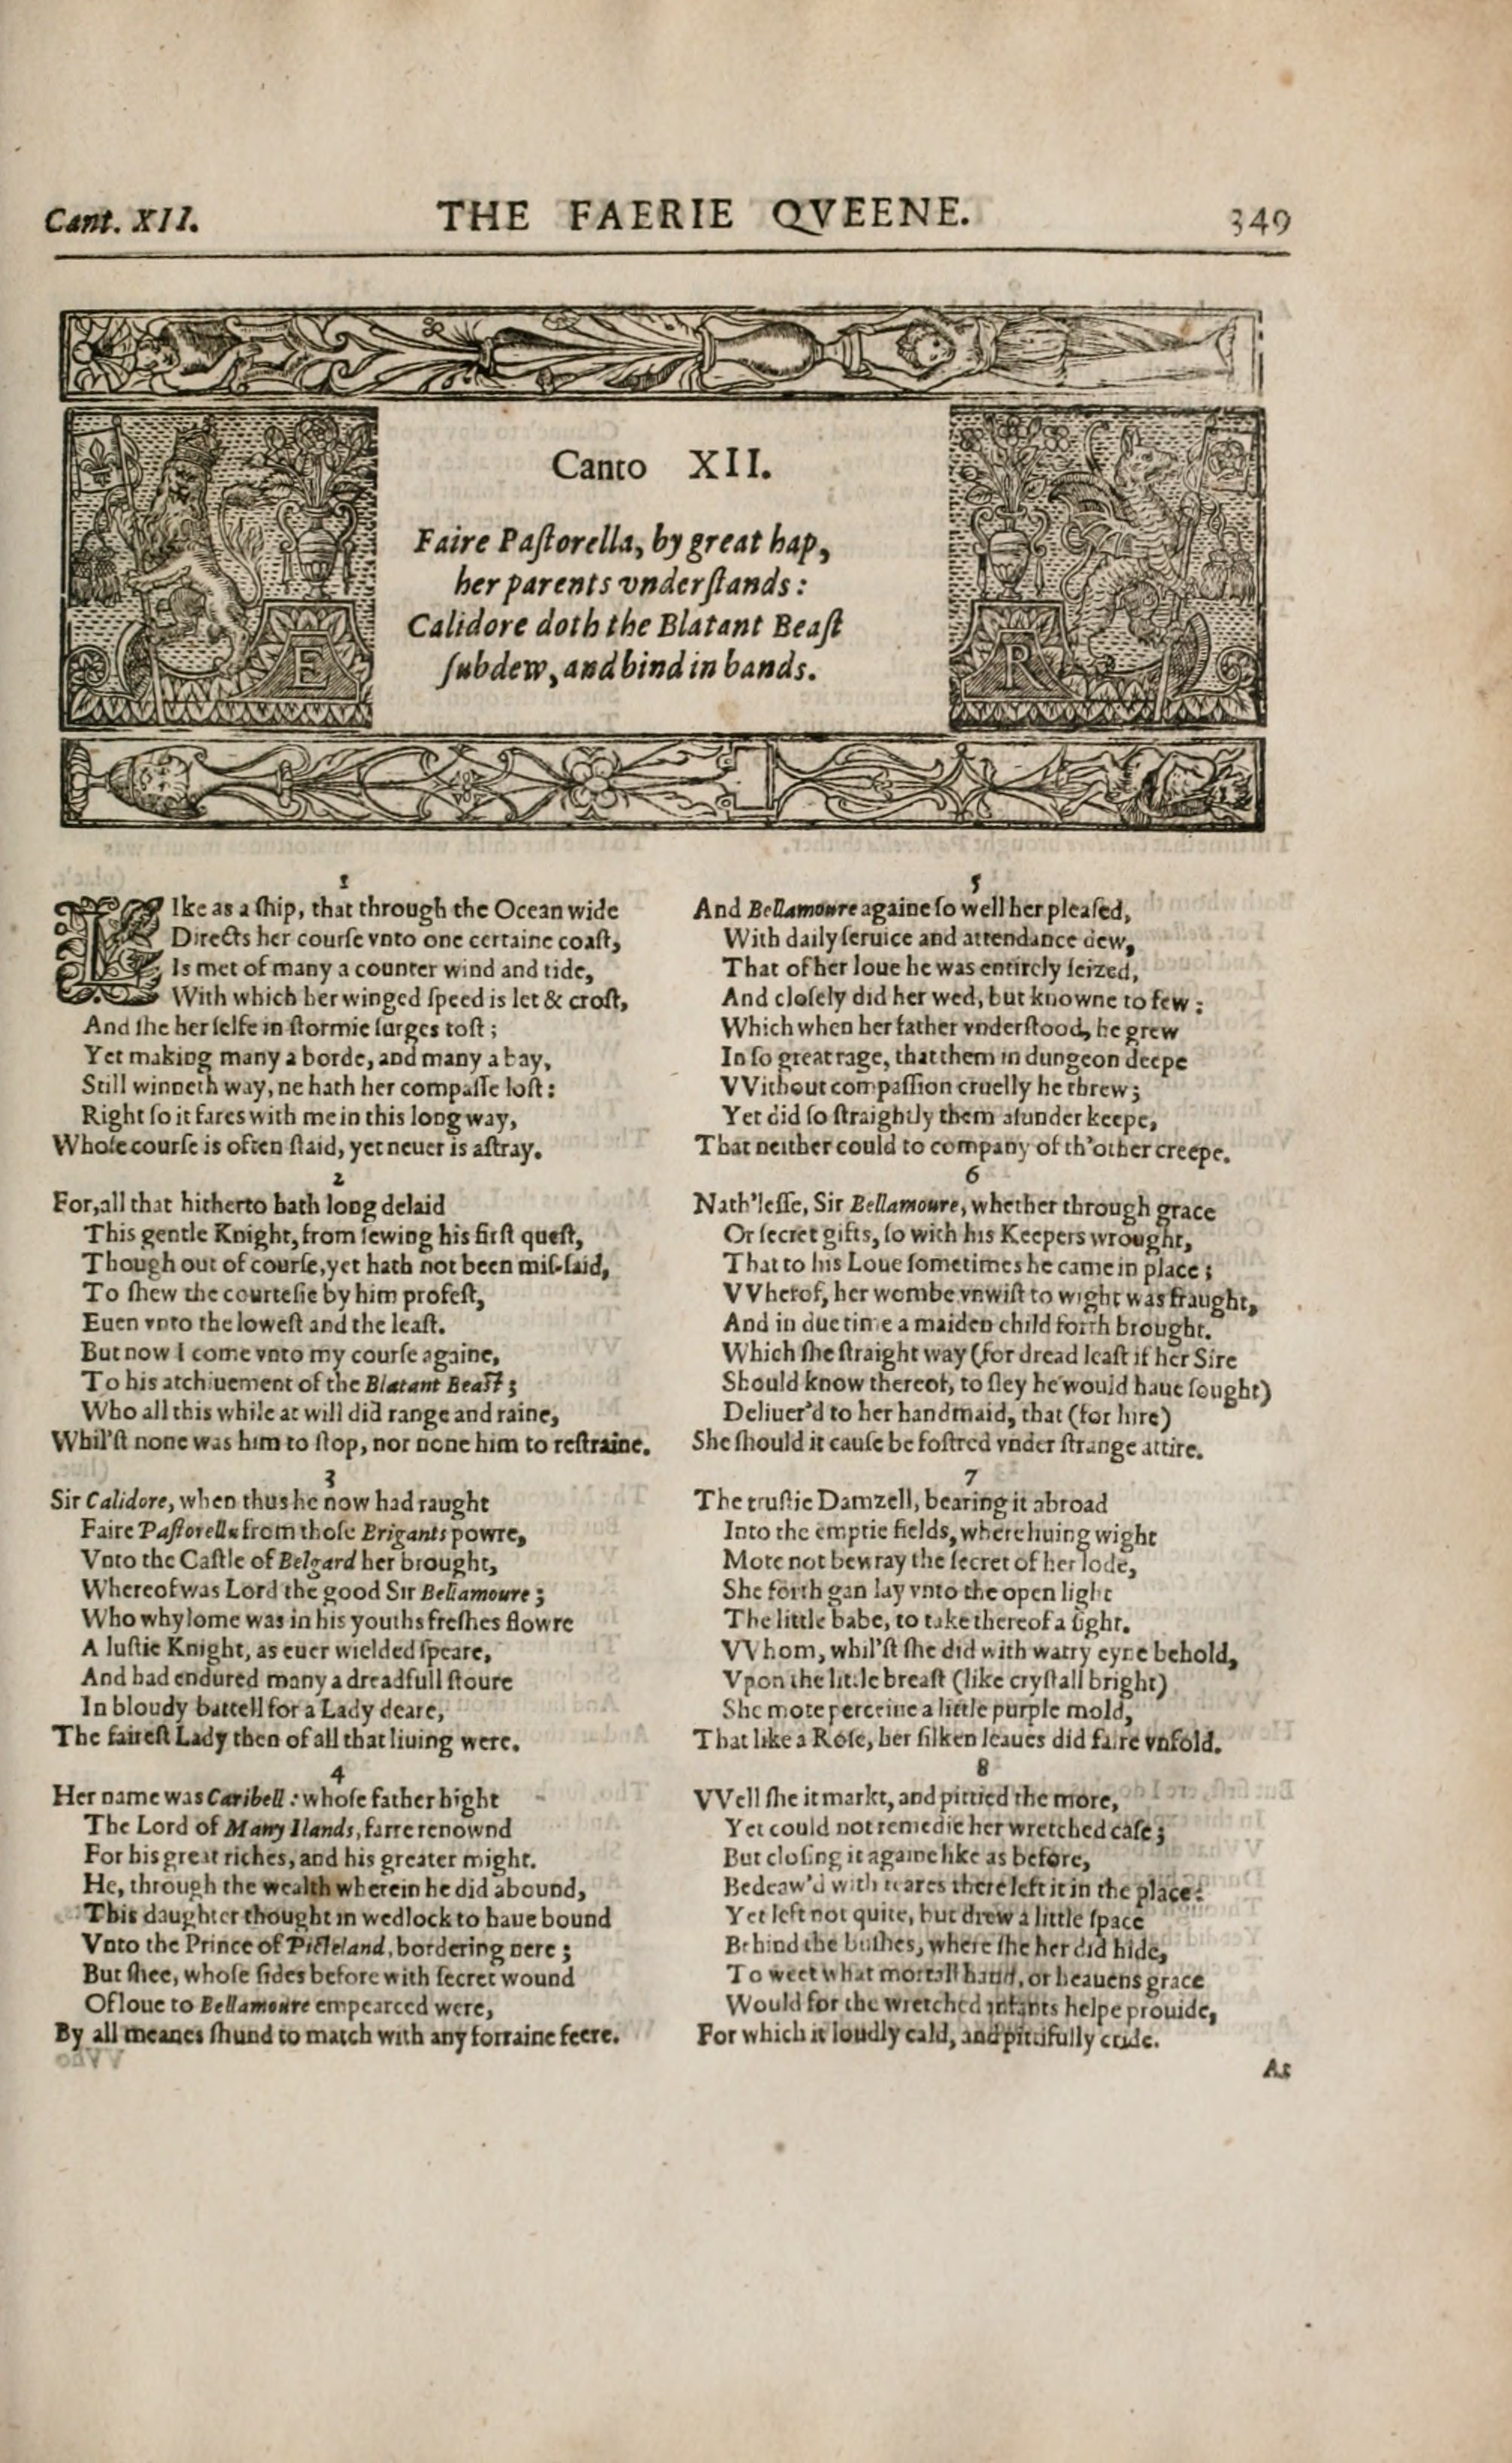 Cant. XII.
THE FAERIE QVEENE.
349
Canto XII.
Faire Paſtorella, by great hap,
her parents vnderſtands:
Calidore doth the Blatant Beaſt
ſubdew, and bind in bands.
E
R
1
LIke as a ſhip, that through the Ocean wide
Directs her courſe vnto one certaine coaſt,
Is met of many a counter wind and tide,
With which her winged ſpeed is let & croſt,
And ſhe her ſelfe in ſtormie ſurges toſt;
Yet making many a borde, and many a bay,
Still winneth way, ne hath her compaſſe loſt:
Right ſo it fares with me in this long way,
Whoſe courſe is often ſtaid, yet neuer is aſtray.
2
For, all that hitherto hath long delaid
This gentle Knight, from ſewing his firſt queſt,
Though out of courſe, yet hath not been miſ-ſaid,
To ſhew the courteſie by him profeſt,
Euen vnto the loweſt and the leaſt.
But now I come vnto my courſe againe,
To his atchiuement of the Blatant Beaſt;
Who all this while at will did range and raine,
Whil'ſt none was him to ſtop, nor none him to reſtraine.
3
Sir Calidore, when thus he now had raught
Faire Paſtorella from thoſe Brigants powre,
Vnto the Caſtle of Belgard her brought,
Whereof was Lord the good Sir Bellamoure;
Who whylome was in his youths freſhes flowre
A luſtie Knight, as euer wielded ſpeare,
And had endured many a dreadfull ſtoure
In bloudy battell for a Lady deare,
The faireſt Lady then of all that liuing were.
4
Her name was Caribell: whoſe father hight
The Lord of Many Ilands, farre renownd
For his great riches, and his greater might.
He, through the wealth wherein he did abound,
This daughter thought in wedlock to haue bound
Vnto the Prince of Picteland, bordering nere;
But ſhee, whoſe ſides before with ſecret wound
Of loue to Bellamoure empearced were,
By all meanes ſhund to match with any forraine feere.
5
And Bellamoure againe ſo well her pleaſed,
With daily ſeruice and attendance dew,
That of her loue he was entirely ſeized,
And cloſely did her wed, but knowne to few:
Which when her father vnderſtood, he grew
In ſo great rage, that them in dungeon deepe
VVithout compaſſion cruelly he threw;
Yet did ſo ſtraightly them aſunder keepe,
That neither could to company of th'other creepe.
6
Nath'leſſe, Sir Bellamoure, whether through grace
Or ſecret gifts, ſo with his Keepers wrought,
That to his Loue ſometimes he came in place;
VVherof, her wombe vnwiſt to wight was fraught,
And in due time a maiden child forth brought.
Which ſhe ſtraight way (for dread leaſt if her Sire
Should know thereof, to ſley he would haue ſought)
Deliuer'd to her handmaid, that (for hire)
She ſhould it cauſe be foſtred vnder ſtrange attire.
7
The truſtie Damzell, bearing it abroad
Into the emptie fields, where liuing wight
Mote not bewray the ſecret of her lode,
She forth gan lay vnto the open light
The little babe, to take thereof a ſight.
VVhom, whil'ſt ſhe did with watry eyne behold,
Vpon the little breaſt (like cryſtall bright)
She mote perceiue a little purple mold,
That like a Roſe, her ſilken leaues did faire vnfold.
8
VVell ſhe it markt, and pittied the more,
Yet could not remedie her wretched caſe;
But cloſing it againe like as before,
Bedeaw'd with teares there left it in the place:
Yet left not quite, but drew a little ſpace
Behind the buſhes, where ſhe her did hide,
To weet what mortall hand, or heauens grace
Would for the wretched infants helpe prouide,
For which it loudly cald, and pittifully cride.
As